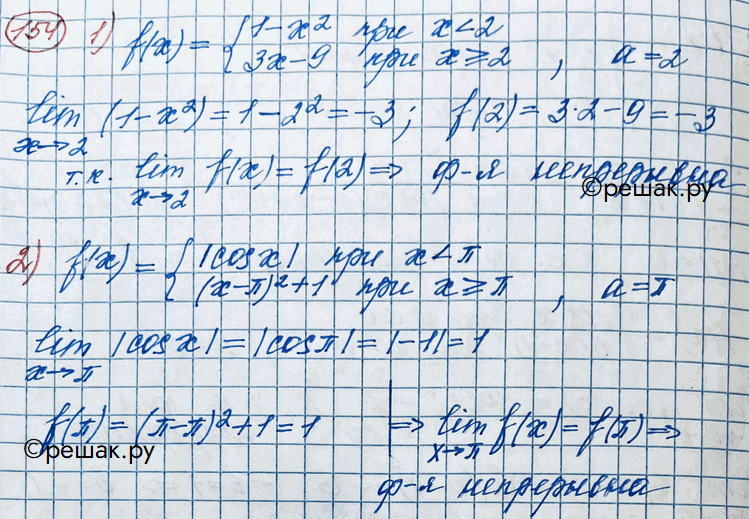 154 1) f(x) = { 1-x² при x<2
3x-9 при x⩾2 , a=2
lim (1-x²) = 1-2² = -3; f(2) = 3·2-9 = -3
x→2
т.к. lim f(x) = f(2) ⇒ ф-я непрерывна
x→2
©решак.ру
2) f(x) = { |cosx| при x<π
(x-π)²+1 при x⩾π , a=π
lim |cosx| = |cosπ| = |-1| = 1
x→π
f(π) = (π-π)²+1 = 1 | ⇒ lim f(x) = f(π) ⇒
x→π
©решак.ру
ф-я непрерывна